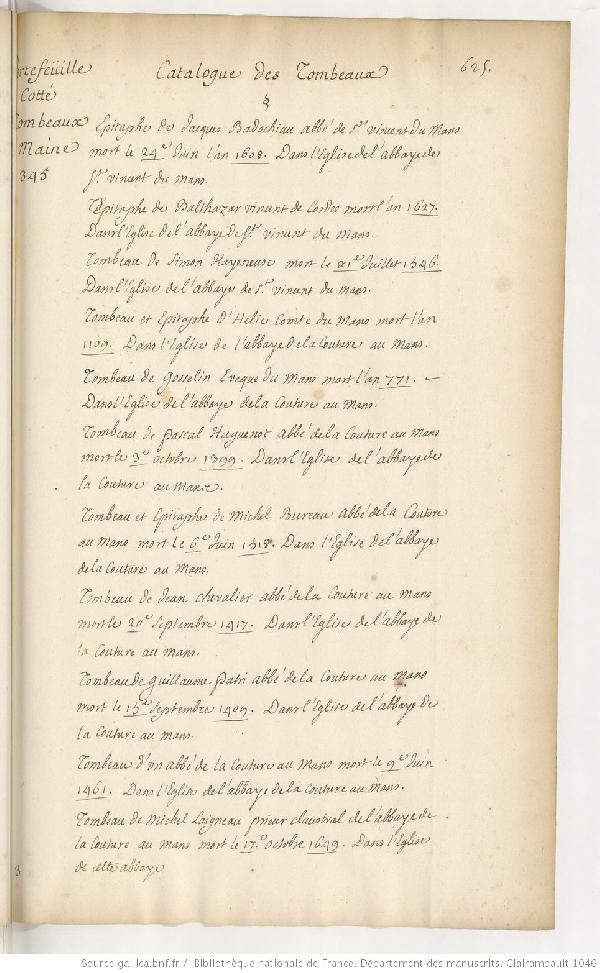 Catalogue des Tombeaux
625.
rtefeüille
Cotté
Tombeaux
Maine
345
§
Epitaphe de Jacques Badochiau abbé de St. vincent du Mans
mort le 24e. Juin l'an 1608. Dans l'Eglise de l'abbaye de
St. vincent du Mans.
Epitaphe de Balthazar vincent de Cordes mort l'an 1627.
Dans l'Eglise de l'abbaye de St. vincent du Mans.
Tombeau de Simon mort le 21e. Juillet 1346.
Dans l'Eglise de l'abbaye de St. vincent du mans.
Tombeau et Epitaphe d'Helie Comte du Mans mort l'an
1109. Dans l'Eglise de l'abbaye de la Couture au Mans.
Tombeau de Gosselin Eveque du Mans mort l'an 771. –
Dans l'Eglise de l'abbaye de la Couture au Mans.
Tombeau de Pascal Huguenot abbé de la Couture au Mans
mort le 3e. octobre 1399. Dans l'Eglise de l'abbaye de
la Couture au Mans.
Tombeau et Epitaphe de Michel Bureau abbé de la Couture
au Mans mort le 6e. Juin 1518. Dans l'Eglise de l'abbaye
de la Couture au Mans.
Tombeau de Jean chevalier abbé de la Couture au Mans
mort le 20e. Septembre 1417. Dans l'Eglise de l'abbaye de
la Couture au Mans.
Tombeau de Guillaume Patri abbé de la Couture au Mans
mort le 15e. Septembre 1409. Dans l'Eglise de l'abbaye de
la Couture au Mans.
Tombeau d'un abbé de la Couture au Mans mort le 9e. Juin
1461. Dans l'Eglise de l'abbaye de la Couture au Mans.
Tombeau de Michel Laigneau prieur claustral de l'abbaye de
la Couture au Mans mort le 17e. octobre 1649. Dans l'Eglise
de cette abbaye
3
Source gallica.bnf.fr / Bibliothèque nationale de France. Département des manuscrits. Clairambault 1046